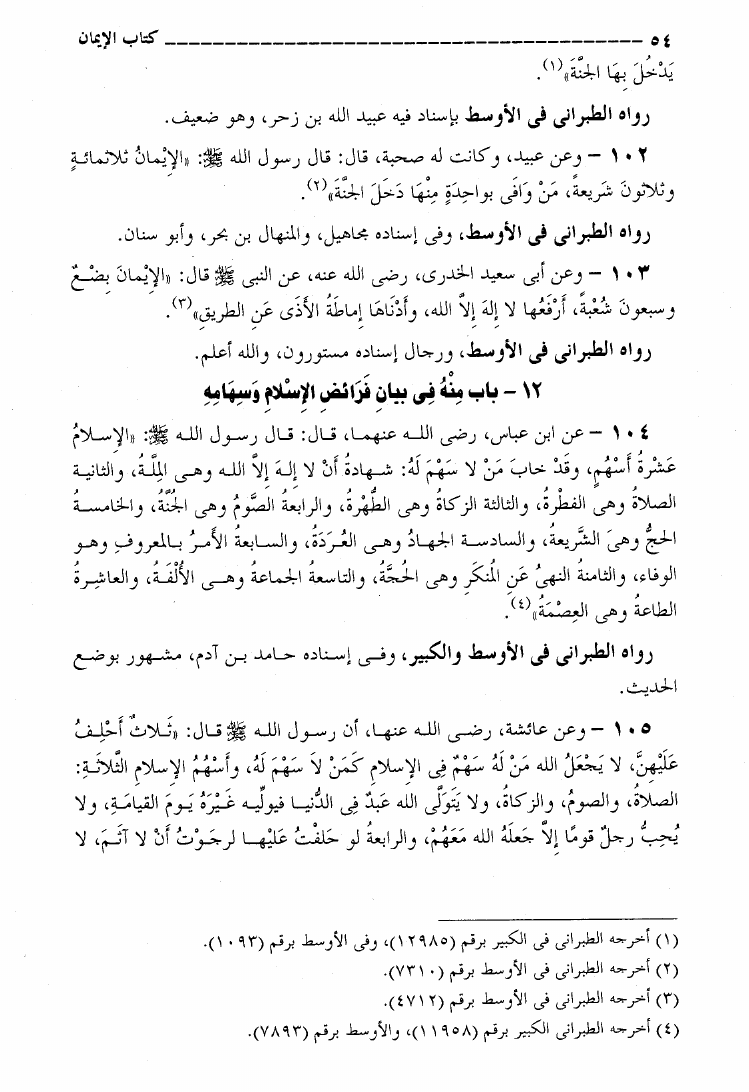 ٥٤ ـــــــــــــــــــــــــــــــــــــــــــــــــــــــــ كتاب الإيمان
يَدْخُلَ بِهَا الجَنَّةَ»(١).
رواه الطبرانى فى الأوسط بإسناد فيه عبيد الله بن زحر، وهو ضعيف.
١٠٢ – وعن عبيد، وكانت له صحبة، قال: قال رسول الله ﷺ: «الإِيْمانُ ثلاثمائـةٍ
وثلاثونَ شَريعةً، مَنْ وَافَى بواحِدَةٍ مِنْهَا دَخَلَ الجَنَّةَ»(٢).
رواه الطبرانى فى الأوسط، وفى إسناده مجاهيل، والمنهال بن بحر، وأبو سنان.
١٠٣ – وعن أبى سعيد الخدرى، رضى الله عنه، عن النبى ﷺ قال: «الإِيْمانَ بِضْـعٌ
وسبعونَ شُعْبةً، أَرْفَعُها لا إلهَ إلاَّ الله، وأَدْنَاهَا إماطَةُ الأَذَى عَنِ الطريقِ»(٣).
رواه الطبرانى فى الأوسط، ورجال إسناده مستورون، والله أعلم.
١٢ – باب مِنْهُ فِى بيانِ فَرَائضِ الإِسْلامِ وَسِهَامِهِ
١٠٤ – عن ابن عباس، رضى اللـه عنهمـا، قـال: قـال رسـول اللـه ﷺ: «الإِسـلامُ
عَشْرةُ أَسْهُمٍ، وقَدْ خابَ مَنْ لا سَهْمَ لَهُ: شـهادةُ أَنْ لا إلـهَ إلاَّ اللـه وهـى المِلَّـةُ، والثانيـة
الصلاةُ وهى الفطْرةُ، والثالثة الزكاةُ وهى الطُّهْرةُ، والرابعةُ الصَّومُ وهى الجُنَّةُ، والخامسـةُ
الحجُّ وهىَ الشَّريعةُ، والسادسـة الجهادُ وهـى العُـرَدَةُ، والسـابعةُ الأَمـرُ بـالمعروفِ وهـو
الوفاء، والثامنةُ النهىُ عَنِ المُنكَرِ وهى الحُجَّةُ، والتاسعةُ الجماعةُ وهـى الأُلْفَـةُ، والعاشـرةُ
الطاعةُ وهى العِصْمَةُ»(٤).
رواه الطبرانى فى الأوسط والكبير، وفـى إسـناده حـامد بـن آدم، مشـهور بوضـع
الحديث.
١٠٥ – وعن عائشة، رضـى اللـه عنهـا، أن رسـول اللـه ﷺ قـال: «ثَـلاثٌ أَحْلِـفُ
عَلَيْهِنَّ، لا يَجْعَلُ الله مَنْ لَهُ سَهْمٌ فِى الإسلامِ كَمَنْ لاَ سَهْمَ لَهُ، وأَسْهُمُ الإسلامِ الثَّلاثَـةِ:
الصلاةُ، والصومُ، والزكاةُ، ولا يَتَولَّى الله عَبدٌ فِى الدُّنيـا فيولِّـيه غَـيْرَهُ يَـومَ القيامَـةِ، ولا
يُحِبُّ رجلٌ قومًا إلاَّ جَعلَهُ الله مَعَهُمْ، والرابعةُ لو حَلفْتُ عَليْهـا لرجَـوْتُ أَنْ لا آثَـمَ، لا
(١) أخرجه الطبرانى فى الكبير برقم (١٢٩٨٥)، وفى الأوسط برقم (١٠٩٣).
(٢) أخرجه الطبرانى فى الأوسط برقم (٧٣١٠).
(٣) أخرجه الطبرانى فى الأوسط برقم (٤٧١٢).
(٤) أخرجه الطبرانى الكبير برقم (١١٩٥٨)، والأوسط برقم (٧٨٩٣).